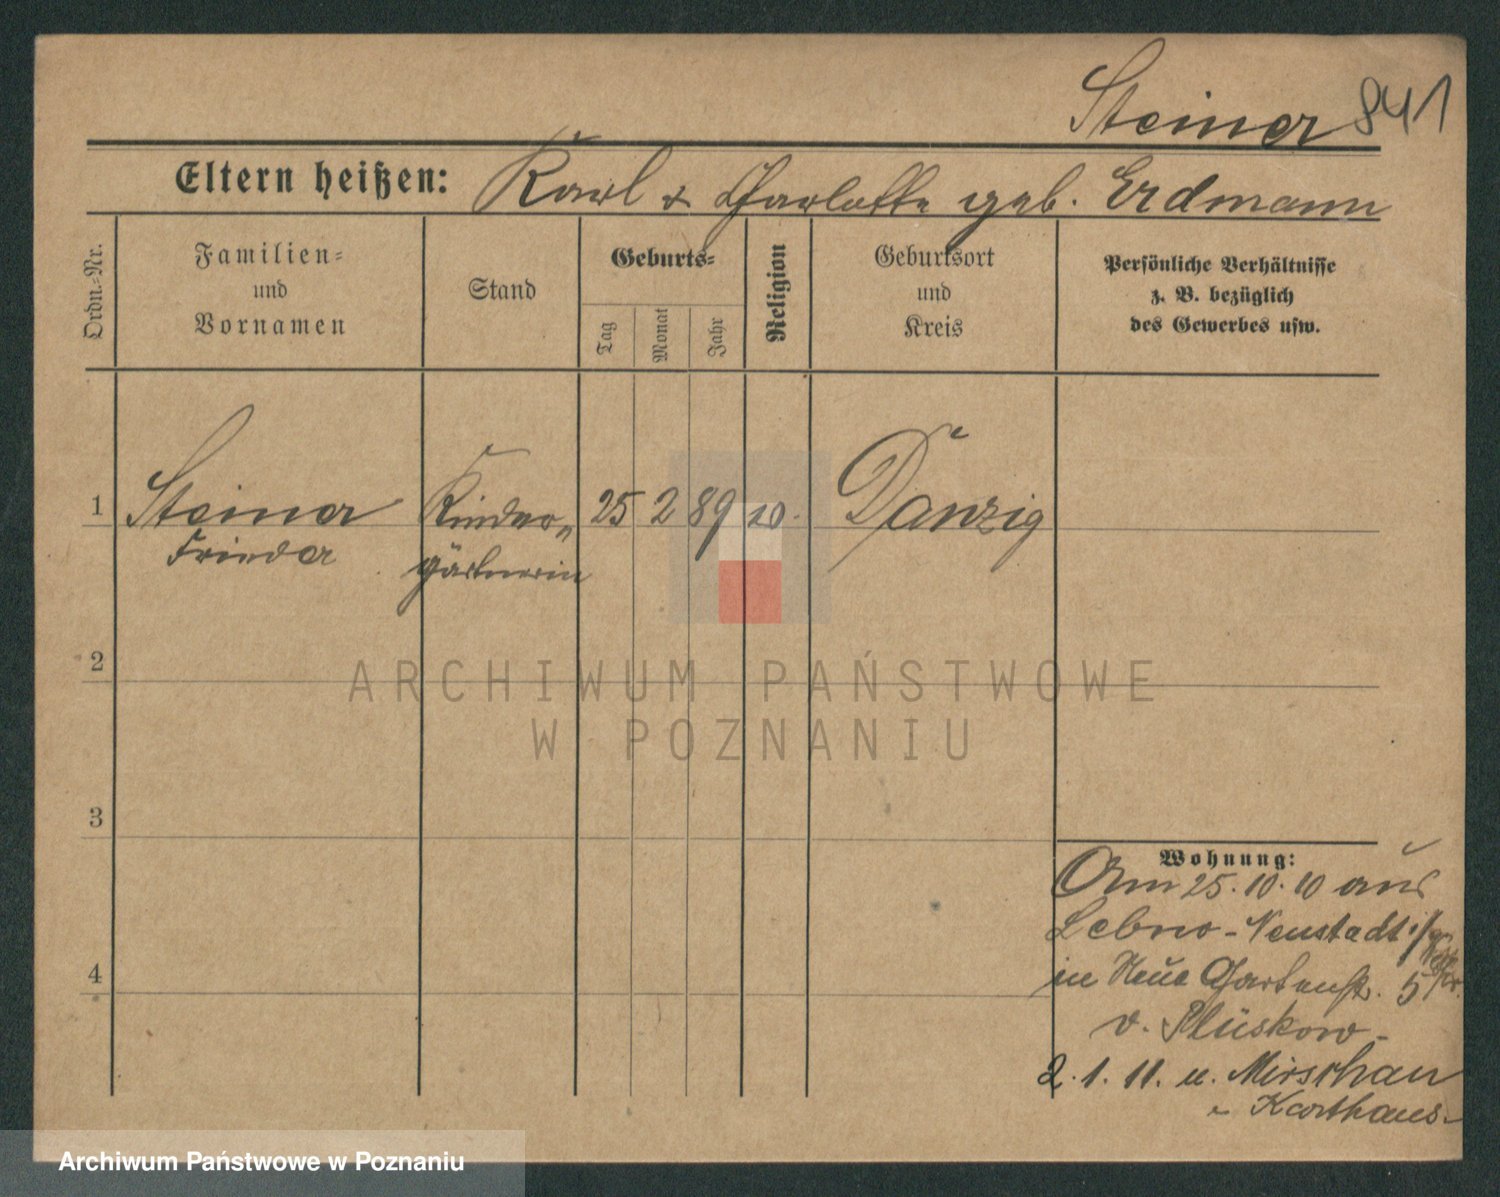 Steiner 841
Eltern heißen: Karl & Charlotte geb. Erdmann
Ordn.-Nr.
Familien-
und
Vornamen
Stand
Geburts-
Tag
Monat
Jahr
Religion
Geburtsort
und
Kreis
Persönliche Verhältnisse
z. B. bezüglich
des Gewerbes usw.
1 Steiner Kinder- 25 2 89 Danzig
gärtnerin
2
3
4
Wohnung:
Am 25.10.10 aus
Lebno-Neustadt
in Neue Gartenstr. 5
v. Plüskow-
2.1.11. n. Mirschau
Karthaus-
ARCHIWUM PAŃSTWOWE
W POZNANIU
Archiwum Państwowe w Poznaniu